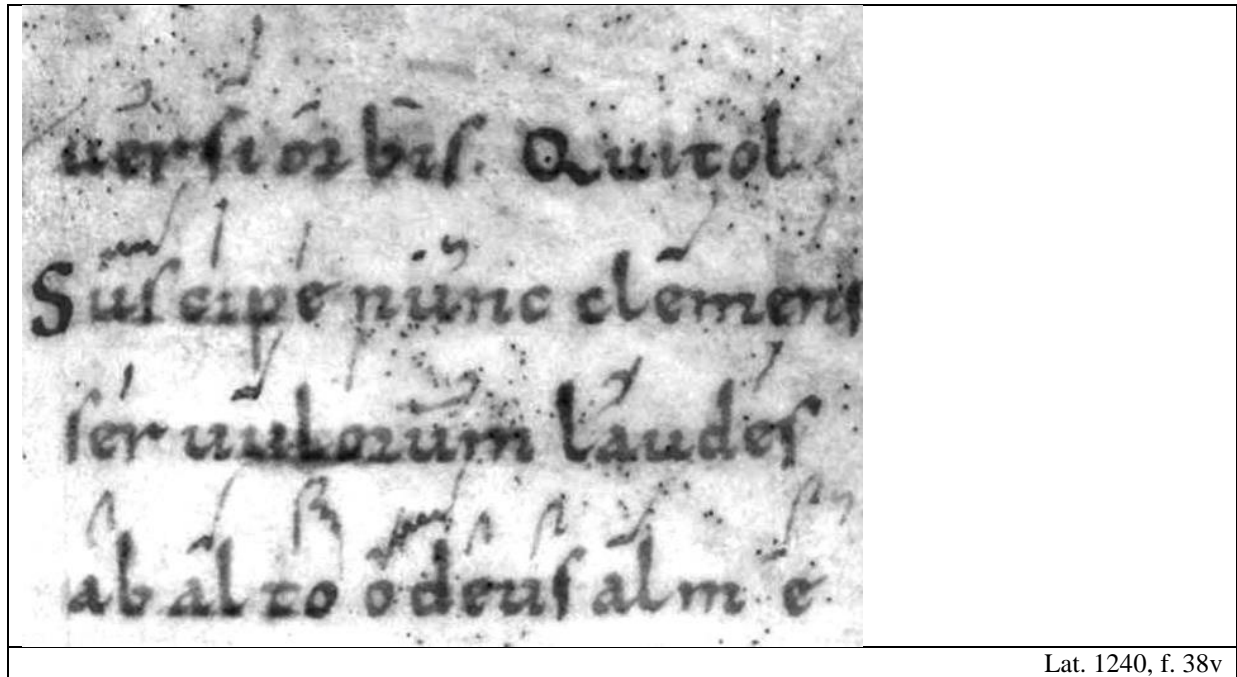 uersi orbis. Qui tol
Suscipe nunc clemens
seruulorum laudes
ab alto o deus alme
Lat. 1240, f. 38v